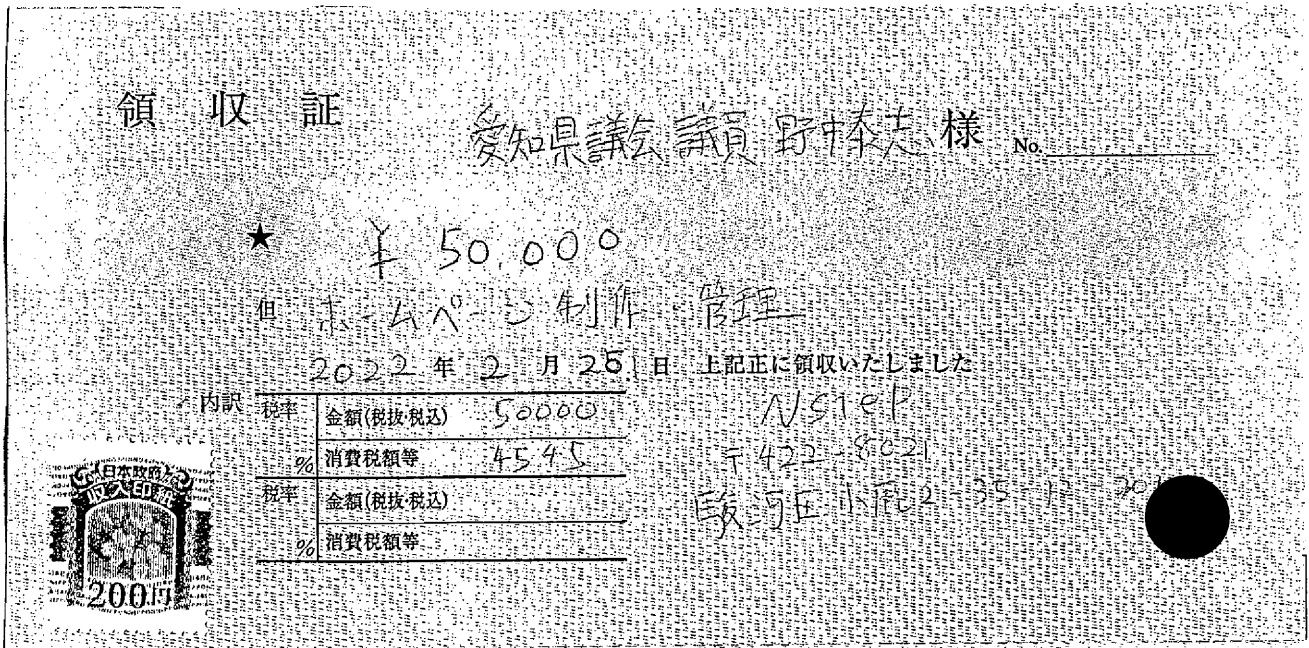 領 収 証
愛知県議会 議員 野中泰志 様 No.
★ ¥ 50,000
但 ホームページ 制作・管理
2022 年 2 月 25 日 上記正に領収いたしました
内訳 税率 金額(税抜・税込) 50000
% 消費税額等 4545
税率 金額(税抜・税込)
% 消費税額等
Nstep
〒422-8021
駿河区小鹿2-35-12-201
日本政府
収入印紙
200円